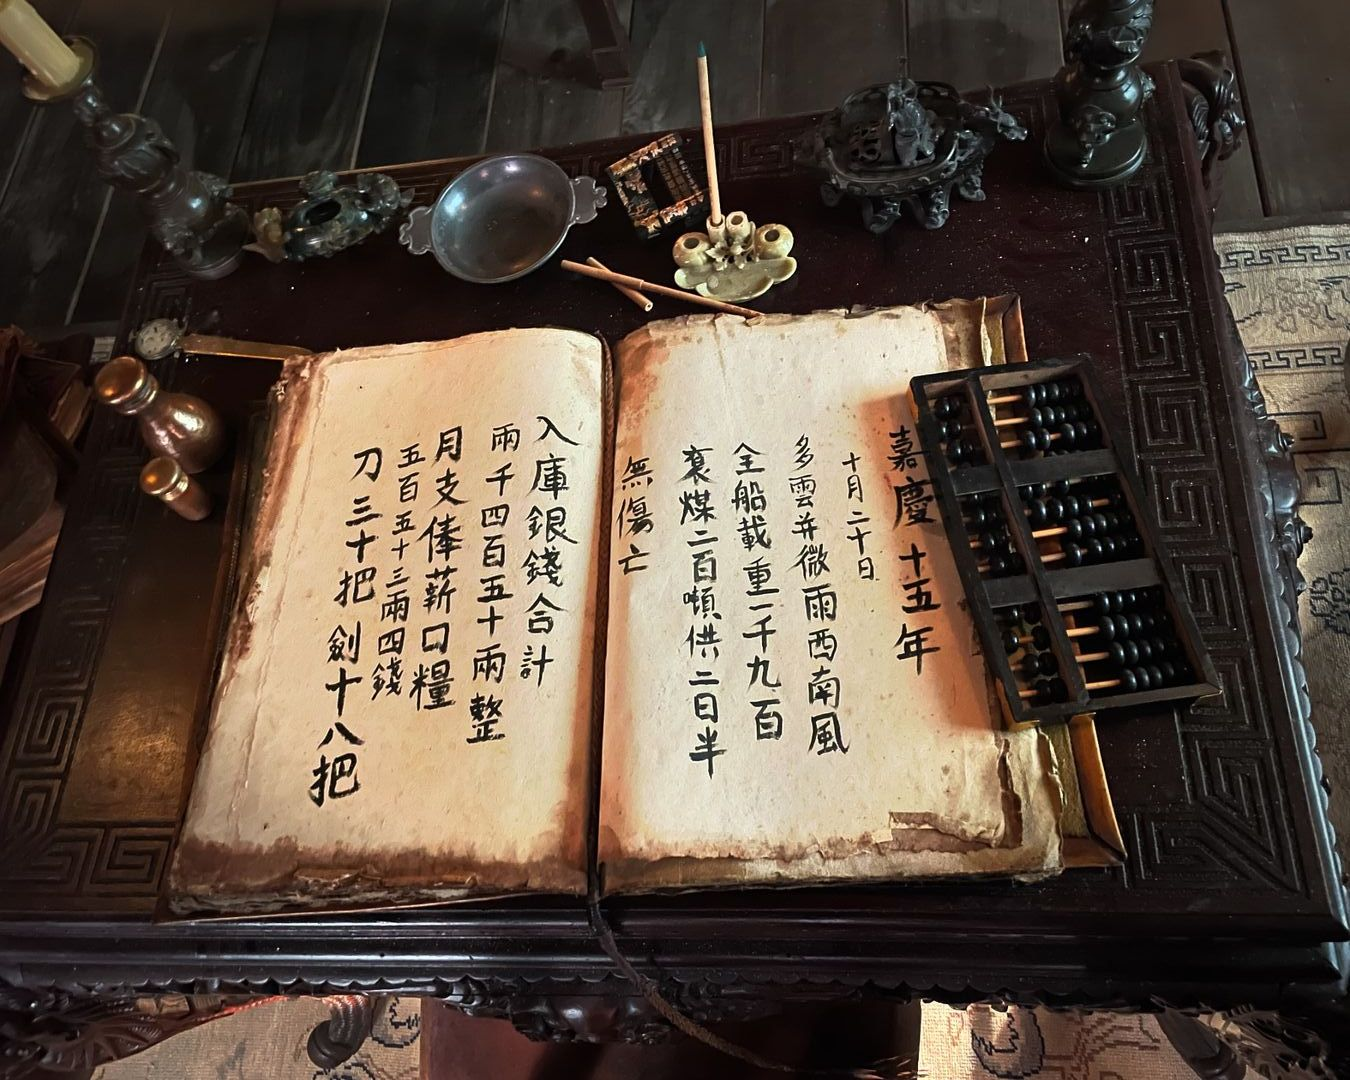 嘉慶十五年
十月二十日
多雲并微雨西南風
全船載重一千九百
裒煤二百噸供二日半
無傷亡
入庫銀錢合計
兩千四百五十兩整
月支俸薪口糧
五百五十三兩四錢
刀三十把劍十八把